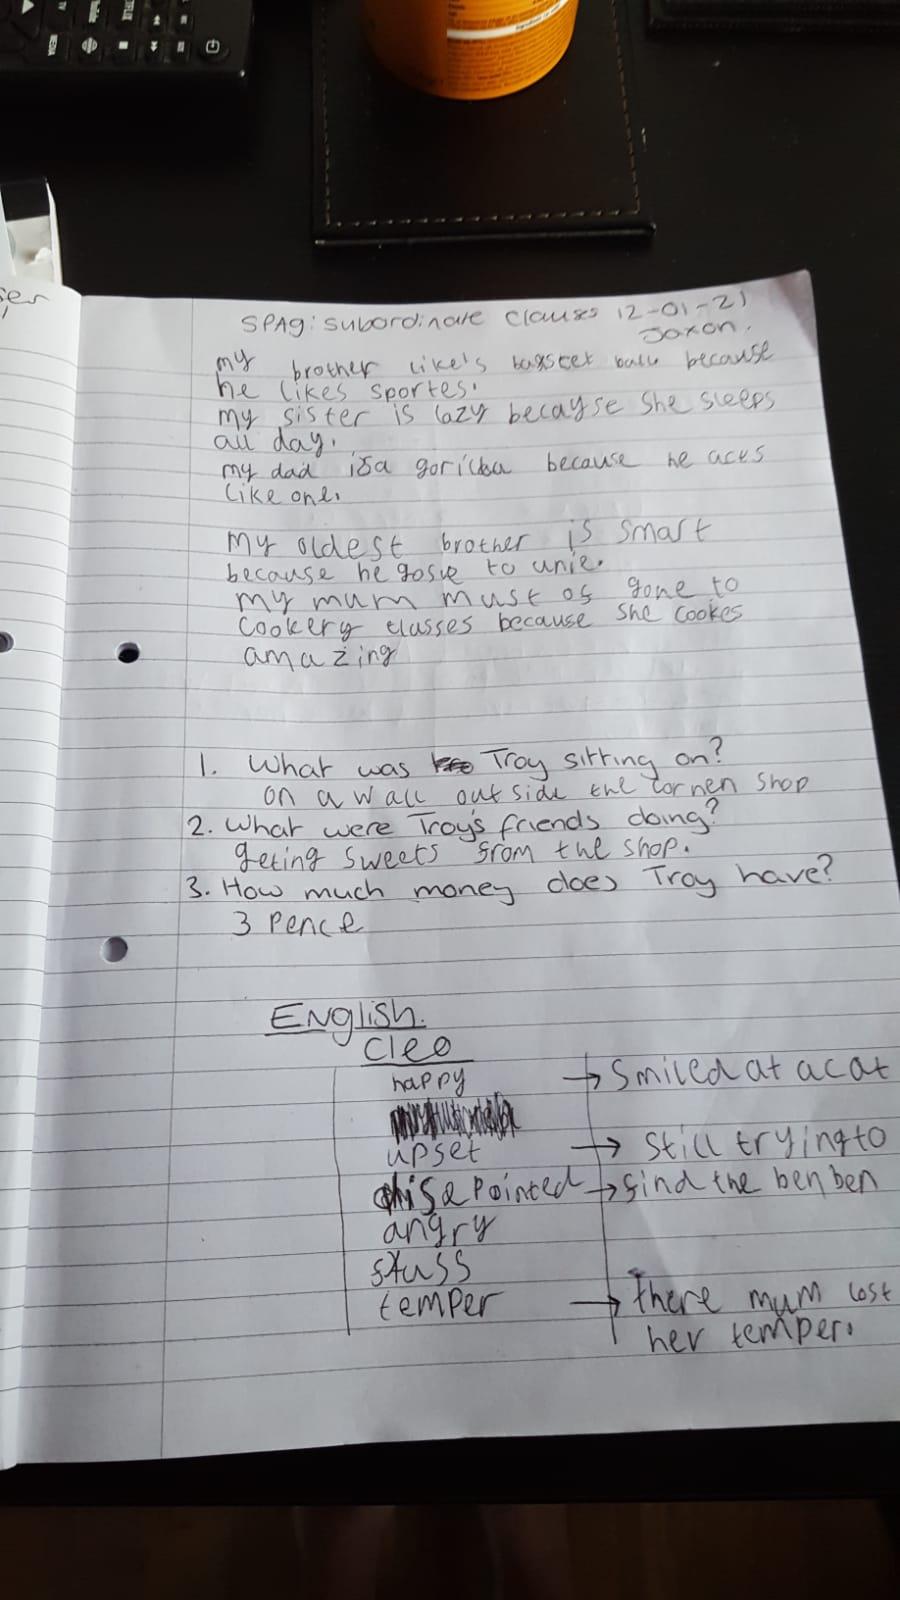 SPAG: subordinate clauses 12-01-21
Jaxon.
my brother like's baxstet ball because
he likes sportes.
my sister is lazy becayse she sleeps
all day.
my dad isa gorilla because he aces
like one.
my oldest brother is smart
because he gose to unie.
my mum must of gone to
cookery classes because she cookes
amazing
1. What was Troy sitting on?
on a wall outside the corner shop
2. What were Troy's friends doing?
geting sweets from the shop.
3. How much money does Troy have?
3 Pence
English.
Cleo
happy → Smiled at a cat
upset → still trying to
disapointed → find the ben ben
angry
stuss
temper → there mum lost
her temper.